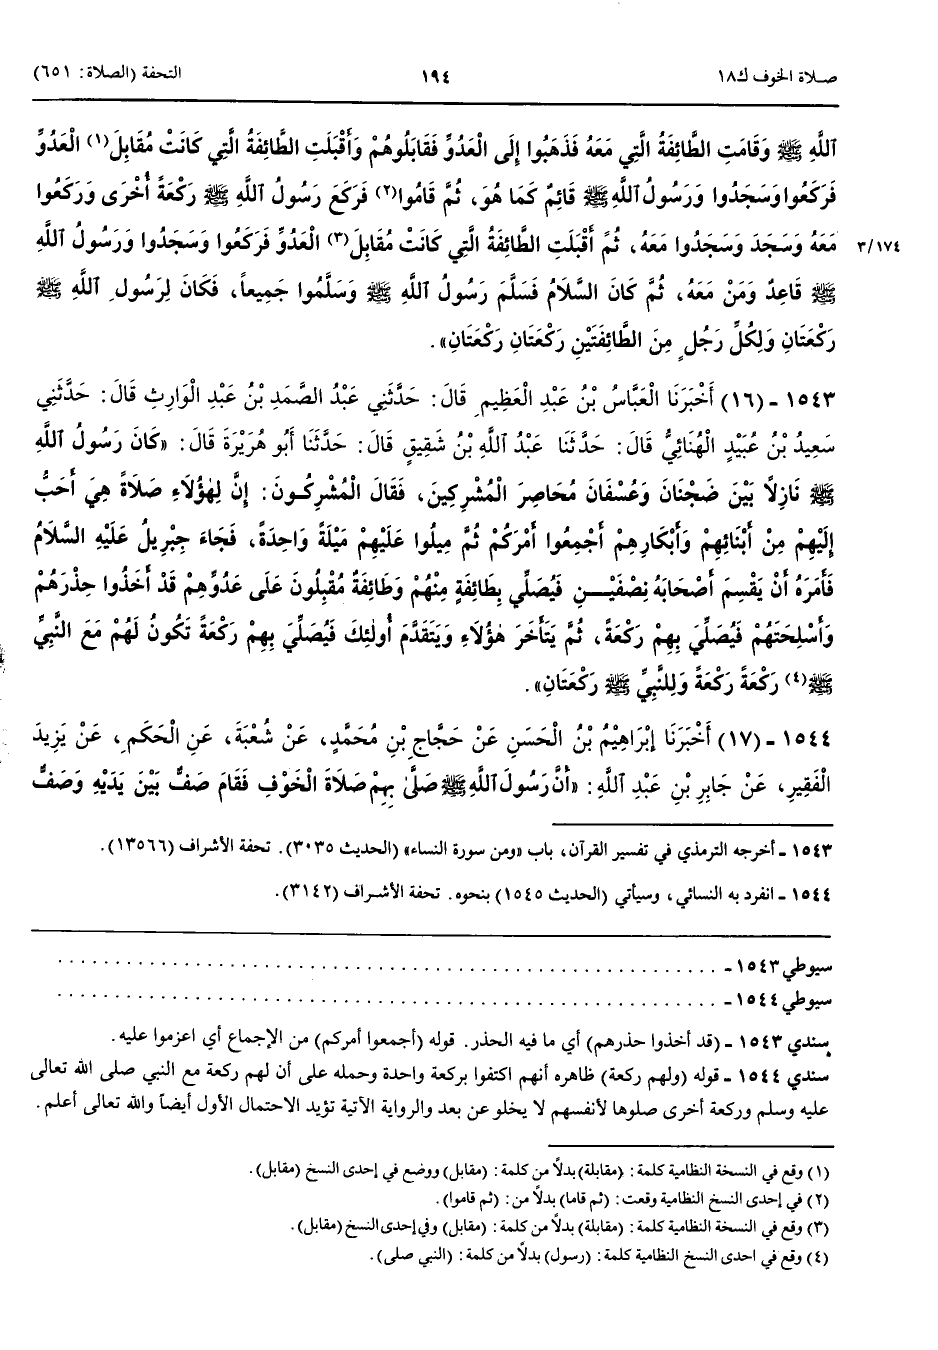 صلاة الخوف ك١٨ ١٩٤ التحفة (الصلاة: ٦٥١)
ٱللَّهِ ﷺ وَقَامَتِ الطَّائِفَةُ الَّتِي مَعَهُ فَذَهَبُوا إِلَى الْعَدُوِّ فَقَابَلُوهُمْ وَأَقْبَلَتِ الطَّائِفَةُ الَّتِي كَانَتْ مُقَابِلَ(١) الْعَدُوِّ
فَرَكَعُوا وَسَجَدُوا وَرَسُولُ ٱللَّهِ ﷺ قَائِمٌ كَمَا هُوَ، ثُمَّ قَامُوا(٢) فَرَكَعَ رَسُولُ ٱللَّهِ ﷺ رَكْعَةً أُخْرَى وَرَكَعُوا
٣/١٧٤ مَعَهُ وَسَجَدَ وَسَجَدُوا مَعَهُ، ثُمَّ أَقْبَلَتِ الطَّائِفَةُ الَّتِي كَانَتْ مُقَابِلَ(٣) الْعَدُوِّ فَرَكَعُوا وَسَجَدُوا وَرَسُولُ ٱللَّهِ
ﷺ قَاعِدٌ وَمَنْ مَعَهُ، ثُمَّ كَانَ السَّلَامُ فَسَلَّمَ رَسُولُ ٱللَّهِ ﷺ وَسَلَّمُوا جَمِيعاً، فَكَانَ لِرَسُولِ ٱللَّهِ ﷺ
رَكْعَتَانِ وَلِكُلِّ رَجُلٍ مِنَ الطَّائِفَتَيْنِ رَكْعَتَانِ رَكْعَتَانِ».
١٥٤٣ - (١٦) أَخْبَرَنَا الْعَبَّاسُ بْنُ عَبْدِ الْعَظِيمِ قَالَ: حَدَّثَنِي عَبْدُ الصَّمَدِ بْنُ عَبْدِ الْوَارِثِ قَالَ: حَدَّثَنِي
سَعِيدُ بْنُ عُبَيْدٍ الْهُنَائِيُّ قَالَ: حَدَّثَنَا عَبْدُ اللَّهِ بْنُ شَقِيقٍ قَالَ: حَدَّثَنَا أَبُو هُرَيْرَةَ قَالَ: «كَانَ رَسُولُ ٱللَّهِ
ﷺ نَازِلاً بَيْنَ ضَجْنَانَ وَعُسْفَانَ مُحَاصِرَ الْمُشْرِكِينَ، فَقَالَ الْمُشْرِكُونَ: إِنَّ لِهٰؤُلَاءِ صَلَاةً هِيَ أَحَبُّ
إِلَيْهِمْ مِنْ أَبْنَائِهِمْ وَأَبْكَارِهِمْ أَجْمِعُوا أَمْرَكُمْ ثُمَّ مِيلُوا عَلَيْهِمْ مَيْلَةً وَاحِدَةً، فَجَاءَ جِبْرِيلُ عَلَيْهِ السَّلَامُ
فَأَمَرَهُ أَنْ يَقْسِمَ أَصْحَابَهُ نِصْفَيْنِ فَيُصَلِّي بِطَائِفَةٍ مِنْهُمْ وَطَائِفَةٌ مُقْبِلُونَ عَلَى عَدُوِّهِمْ قَدْ أَخَذُوا حِذْرَهُمْ
وَأَسْلِحَتَهُمْ فَيُصَلِّيَ بِهِمْ رَكْعَةً، ثُمَّ يَتَأَخَّرَ هٰؤُلَاءِ وَيَتَقَدَّمَ أُولٰئِكَ فَيُصَلِّيَ بِهِمْ رَكْعَةً تَكُونُ لَهُمْ مَعَ النَّبِيِّ
ﷺ(٤) رَكْعَةً رَكْعَةً وَلِلنَّبِيِّ ﷺ رَكْعَتَانِ».
١٥٤٤ - (١٧) أَخْبَرَنَا إِبْرَاهِيمُ بْنُ الْحَسَنِ عَنْ حَجَّاجِ بْنِ مُحَمَّدٍ، عَنْ شُعْبَةَ، عَنِ الْحَكَمِ، عَنْ يَزِيدَ
الْفَقِيرِ، عَنْ جَابِرِ بْنِ عَبْدِ ٱللَّهِ: «أَنَّ رَسُولَ ٱللَّهِ ﷺ صَلَّىٰ بِهِمْ صَلَاةَ الْخَوْفِ فَقَامَ صَفٌّ بَيْنَ يَدَيْهِ وَصَفٌّ
١٥٤٣ - أخرجه الترمذي في تفسير القرآن، باب «ومن سورة النساء» (الحديث ٣٠٣٥). تحفة الأشراف (١٣٥٦٦).
١٥٤٤ - انفرد به النسائي، وسيأتي (الحديث ١٥٤٥) بنحوه. تحفة الأشراف (٣١٤٢).
سيوطي ١٥٤٣ - . . . . . . . . . . . . . . . . . . . . . . . . . . . . . .
سيوطي ١٥٤٤ - . . . . . . . . . . . . . . . . . . . . . . . . . . . . . .
سندي ١٥٤٣ - (قد أخذوا حذرهم) أي ما فيه الحذر. قوله (أجمعوا أمركم) من الإجماع أي اعزموا عليه.
سندي ١٥٤٤ - قوله (ولهم ركعة) ظاهره أنهم اكتفوا بركعة واحدة وحمله على أن لهم ركعة مع النبي صلى الله تعالى
عليه وسلم وركعة أخرى صلوها لأنفسهم لا يخلو عن بعد والرواية الآتية تؤيد الاحتمال الأول أيضاً والله تعالى أعلم.
(١) وقع في النسخة النظامية كلمة: (مقابلة) بدلاً من كلمة: (مقابل) ووضع في إحدى النسخ (مقابل).
(٢) في إحدى النسخ النظامية وقعت: (ثم قاما) بدلاً من: (ثم قاموا).
(٣) وقع في النسخة النظامية كلمة: (مقابلة) بدلاً من كلمة: (مقابل) وفي إحدى النسخ (مقابل).
(٤) وقع في احدى النسخ النظامية كلمة: (رسول) بدلاً من كلمة: (النبي صلى).